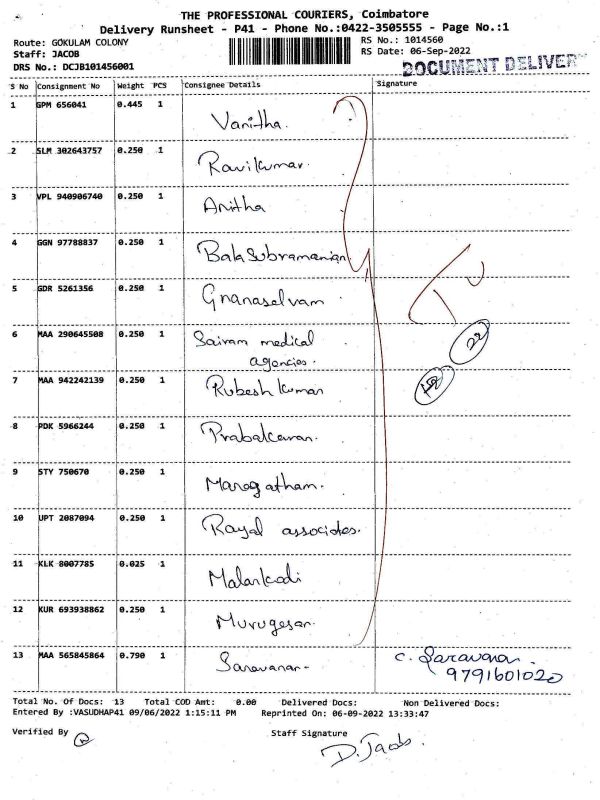 THE PROFESSIONAL COURIERS, Coimbatore
Delivery Runsheet - P41 - Phone No.:0422-3505555 - Page No.:1
Route: GOKULAM COLONY
Staff: JACOB
DRS No.: DCJB101456001
RS No.: 1014560
RS Date: 06-Sep-2022
DOCUMENT DELIVERY
S No Consignment No Weight PCS Consignee Details Signature
1 GPM 656041 0.445 1 Vanitha.
2 SLM 302643757 0.250 1 Ravikumar.
3 VPL 940906740 0.250 1 Anitha
4 GGN 97788837 0.250 1 Balasubramanian.
5 GDR 5261356 0.250 1 Gnanaselvam
6 MAA 290645508 0.250 1 Sairam medical
agencies.
7 MAA 942242139 0.250 1 Rubesh kumar
8 PDK 5966244 0.250 1 Prabakaran.
9 STY 750670 0.250 1 Maragatham.
10 UPT 2087094 0.250 1 Royal associates.
11 KLK 8007785 0.025 1 Malarkodi
12 KUR 693938862 0.250 1 Murugesan.
13 MAA 565845864 0.790 1 Saravanan- C. Saravanan.
9791601020
22
Total No. Of Docs: 13 Total COD Amt: 0.00 Delivered Docs: Non Delivered Docs:
Entered By :VASUDHAP41 09/06/2022 1:15:11 PM Reprinted On: 06-09-2022 13:33:47
Verified By Staff Signature
D. Jacob.